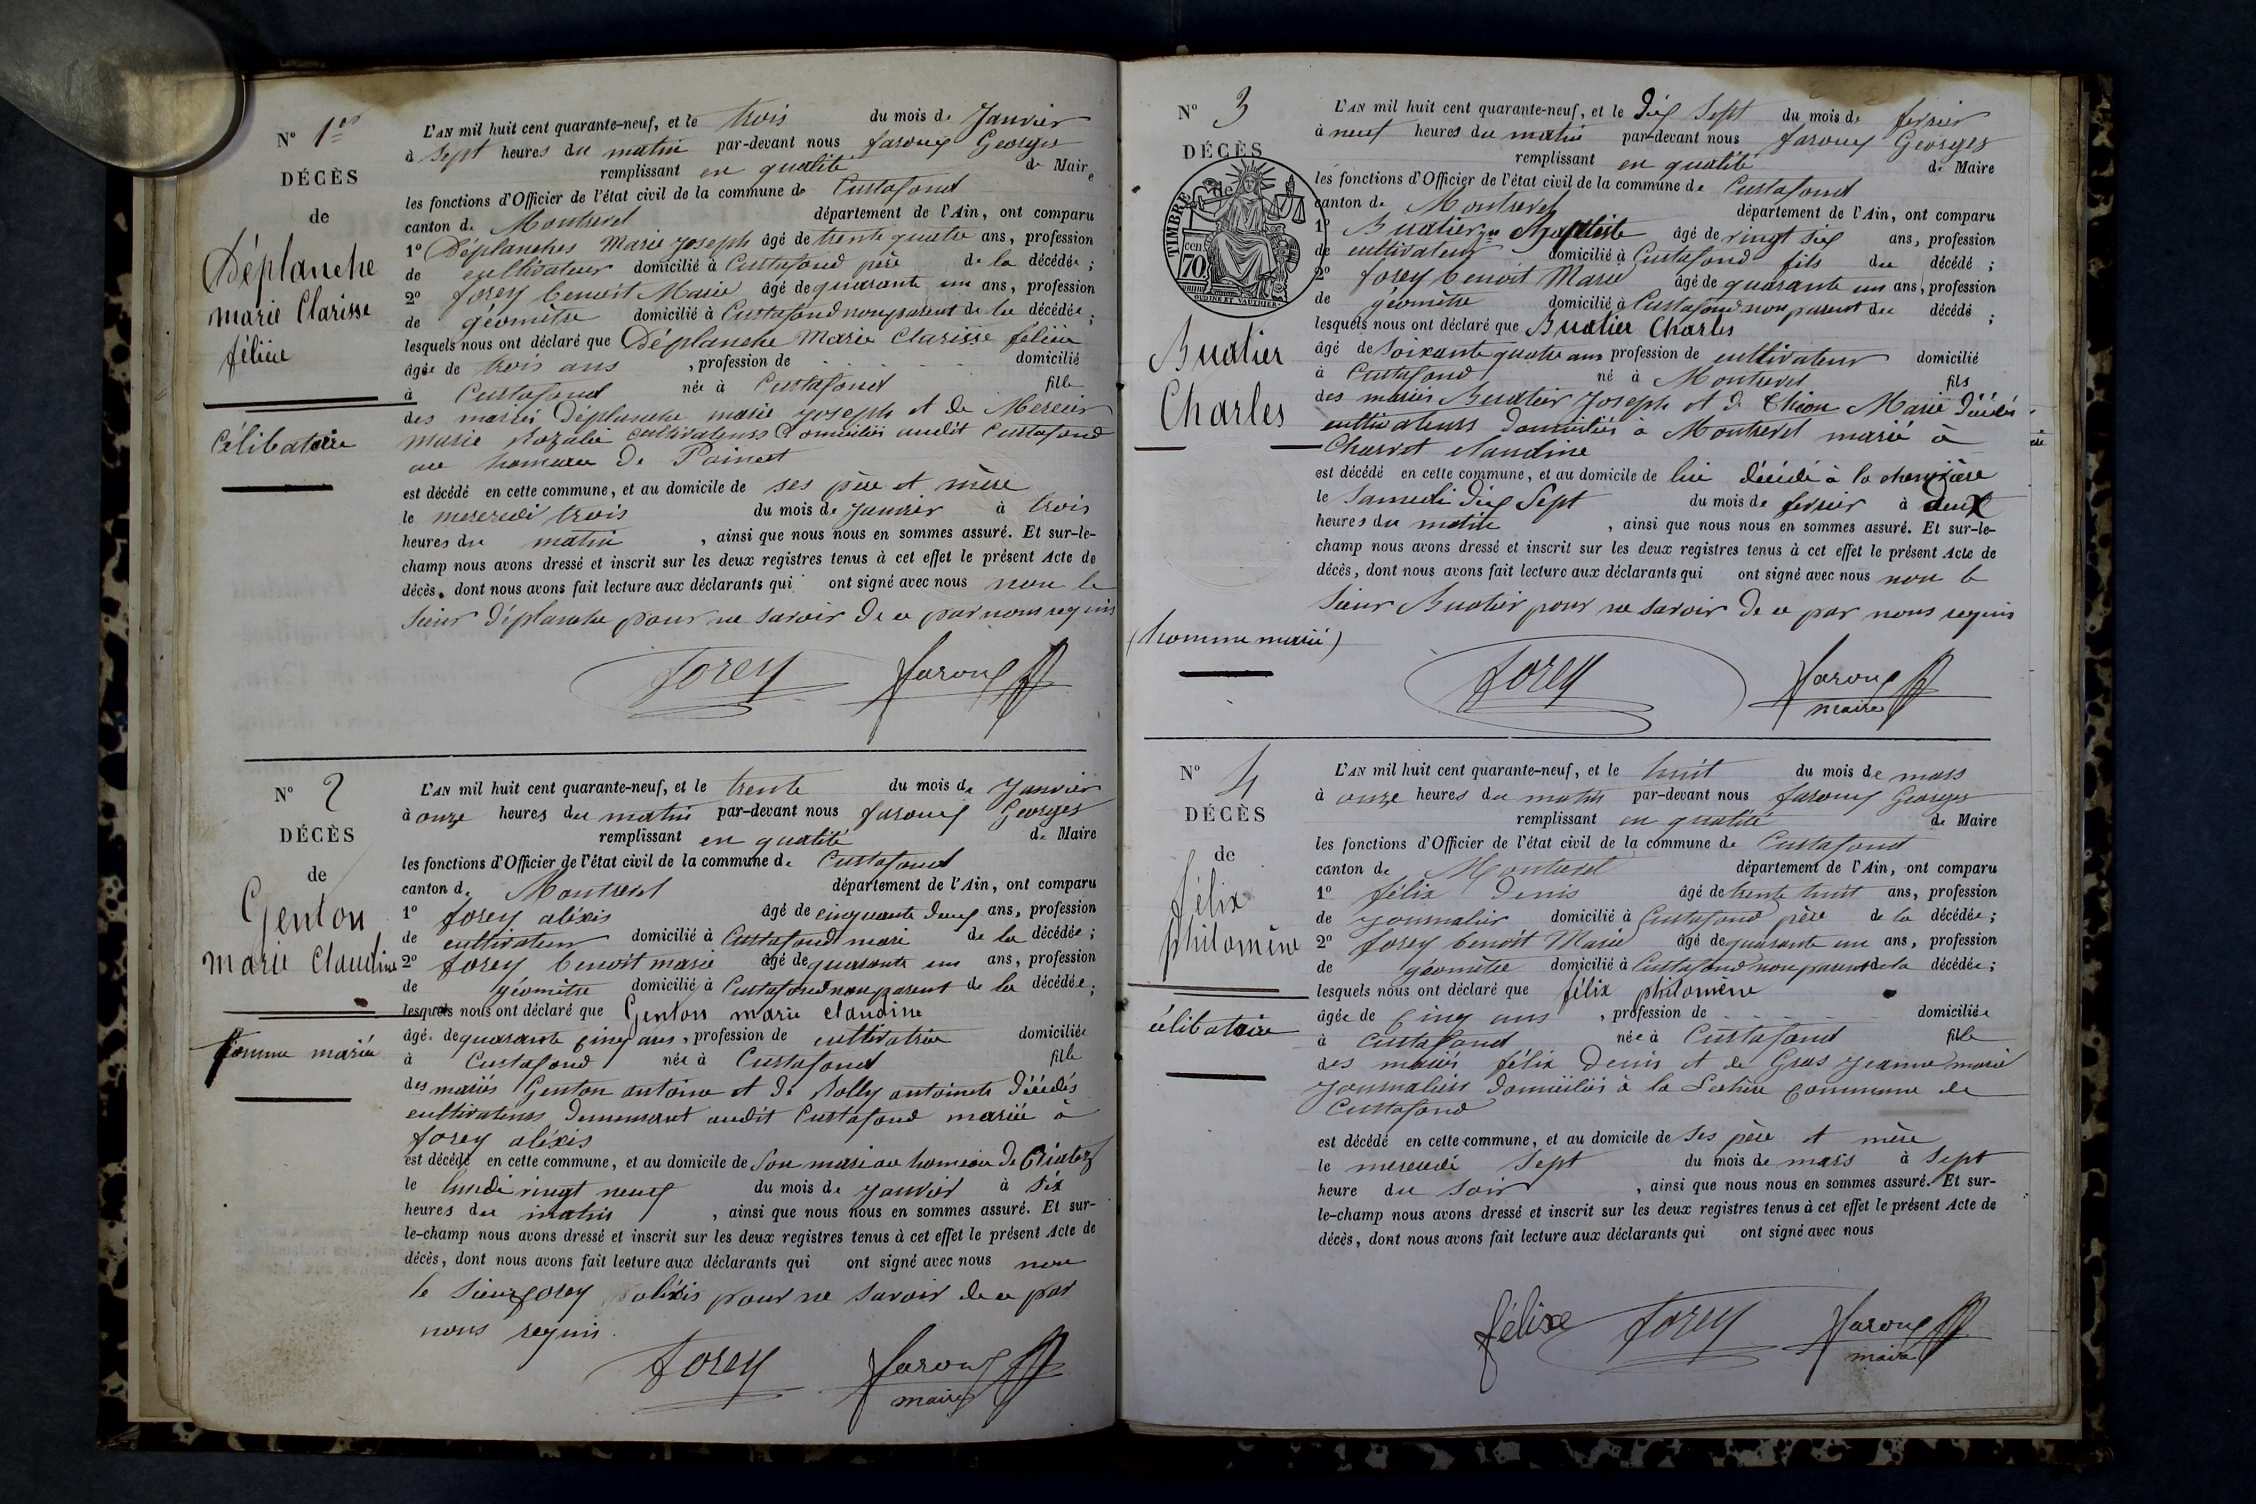 N° 1er
DÉCÈS
de
Déplanche
marie Clarisse
féliée
Célibataire
L'AN mil huit cent quarante-neuf, et le trois du mois de Janvier
à sept heures du matin par-devant nous faroux Georges
remplissant en qualité de Maire
les fonctions d'Officier de l'état civil de la commune de Curtafond
canton de Montrevel département de l'Ain, ont comparu
1° Déplanches Marie Joseph âgé de trente quatre ans, profession
de cultivateur domicilié à Curtafond père de la décédée ;
2° forey benoit Marie âgé de quarante un ans, profession
de géomètre domicilié à Curtafond non parent de la décédée ;
lesquels nous ont déclaré que Déplanche Marie Clarisse féliée
âgée de trois ans , profession de domicilié
à Curtafond née à Curtafond fille
des mariés Déplanche marie joseph et de Mercier
marie Rozalie cultivateurs domiciliés audit Curtafond
au hameau de Poinset
est décédé en cette commune, et au domicile de ses père et mère
le mercredi trois du mois de janvier à trois
heures du matin , ainsi que nous nous en sommes assuré. Et sur-le-
champ nous avons dressé et inscrit sur les deux registres tenus à cet effet le présent Acte de
décès, dont nous avons fait lecture aux déclarants qui ont signé avec nous non le
sieur déplanche pour ne savoir de ce par nous requis
forey faroux
N° 2
DÉCÈS
de
Genton
marie Claudine
femme mariée
L'AN mil huit cent quarante-neuf, et le trente du mois de Janvier
à onze heures du matin par-devant nous faroux Georges
remplissant en qualité de Maire
les fonctions d'Officier de l'état civil de la commune de Curtafond
canton de Montrevel département de l'Ain, ont comparu
1° forey aléxis âgé de cinquante deux ans, profession
de cultivateur domicilié à Curtafond mari de la décédée ;
2° forey benoit marie âgé de quarante un ans, profession
de géomètre domicilié à Curtafond non parent de la décédée ;
lesquels nous ont déclaré que Genton marie claudine
âgé de quarante cinq ans, profession de cultivatrice domiciliée
à Curtafond née à Curtafond fille
des mariés Genton antoine et de Solly antoinete décédés
cultivateurs demeurant audit Curtafond mariée à
forey aléxis
est décédé en cette commune, et au domicile de son mari au hameau de
le lundi vingt neuf du mois de janvier à six
heures du matin , ainsi que nous nous en sommes assuré. Et sur-
le-champ nous avons dressé et inscrit sur les deux registres tenus à cet effet le présent Acte de
décès, dont nous avons fait lecture aux déclarants qui ont signé avec nous non
le sieur forey aléxis pour ne savoir de ce par
nous requis.
forey faroux
maire
N° 3
DÉCÈS
de
TIMBRE
cent
70
OUDINÉ ET VAUTHIER
Buatier
Charles
(homme marié)
L'AN mil huit cent quarante-neuf, et le dix sept du mois de février
à neuf heures du matin par-devant nous faroux Georges
remplissant en qualité de Maire
les fonctions d'Officier de l'état civil de la commune de Curtafond
canton de Montrevel département de l'Ain, ont comparu
1° Buatier jn Baptiste âgé de vingt six ans, profession
de cultivateur domicilié à Curtafond fils du décédé ;
2° forey benoit Marie âgé de quarante un ans, profession
de géomètre domicilié à Curtafond non parent du décédé ;
lesquels nous ont déclaré que Buatier Charles
âgé de soixante quatre ans profession de cultivateur domicilié
à Curtafond né à Montrevel fils
des mariés Buatier Joseph et de Marie décédés
cultivateurs domiciliés à Montrevel marié à
Charvet claudine
est décédé en cette commune, et au domicile de lui décédé à la
le samedi dix sept du mois de fevrier à deux
heures du matin , ainsi que nous nous en sommes assuré. Et sur-le-
champ nous avons dressé et inscrit sur les deux registres tenus à cet effet le présent Acte de
décès, dont nous avons fait lecture aux déclarants qui ont signé avec nous non le
sieur Buatier pour ne savoir de ce par nous requis
forey faroux
maire
N° 4
DÉCÈS
de
félix
philomène
célibataire
L'AN mil huit cent quarante-neuf, et le huit du mois de mars
à onze heures du matin par-devant nous faroux Georges
remplissant en qualité de Maire
les fonctions d'Officier de l'état civil de la commune de Curtafond
canton de Montrevel département de l'Ain, ont comparu
1° félix Denis âgé de trente huit ans, profession
de journalier domicilié à Curtafond père de la décédée ;
2° forey benoit Marie âgé de quarante un ans, profession
de géomètre domicilié à Curtafond non parent de la décédée ;
lesquels nous ont déclaré que félix philomène
âgée de cinq ans , profession de domiciliée
à Curtafond née à Curtafond fille
des mariés félix Denis et de Gras jeanne marie
journaliers domiciliés à la commune de
Curtafond
est décédé en cette commune, et au domicile de ses père et mère
le mercredi sept du mois de mars à sept
heure du soir , ainsi que nous nous en sommes assuré. Et sur-
le-champ nous avons dressé et inscrit sur les deux registres tenus à cet effet le présent Acte de
décès, dont nous avons fait lecture aux déclarants qui ont signé avec nous
félixe forey faroux
maire